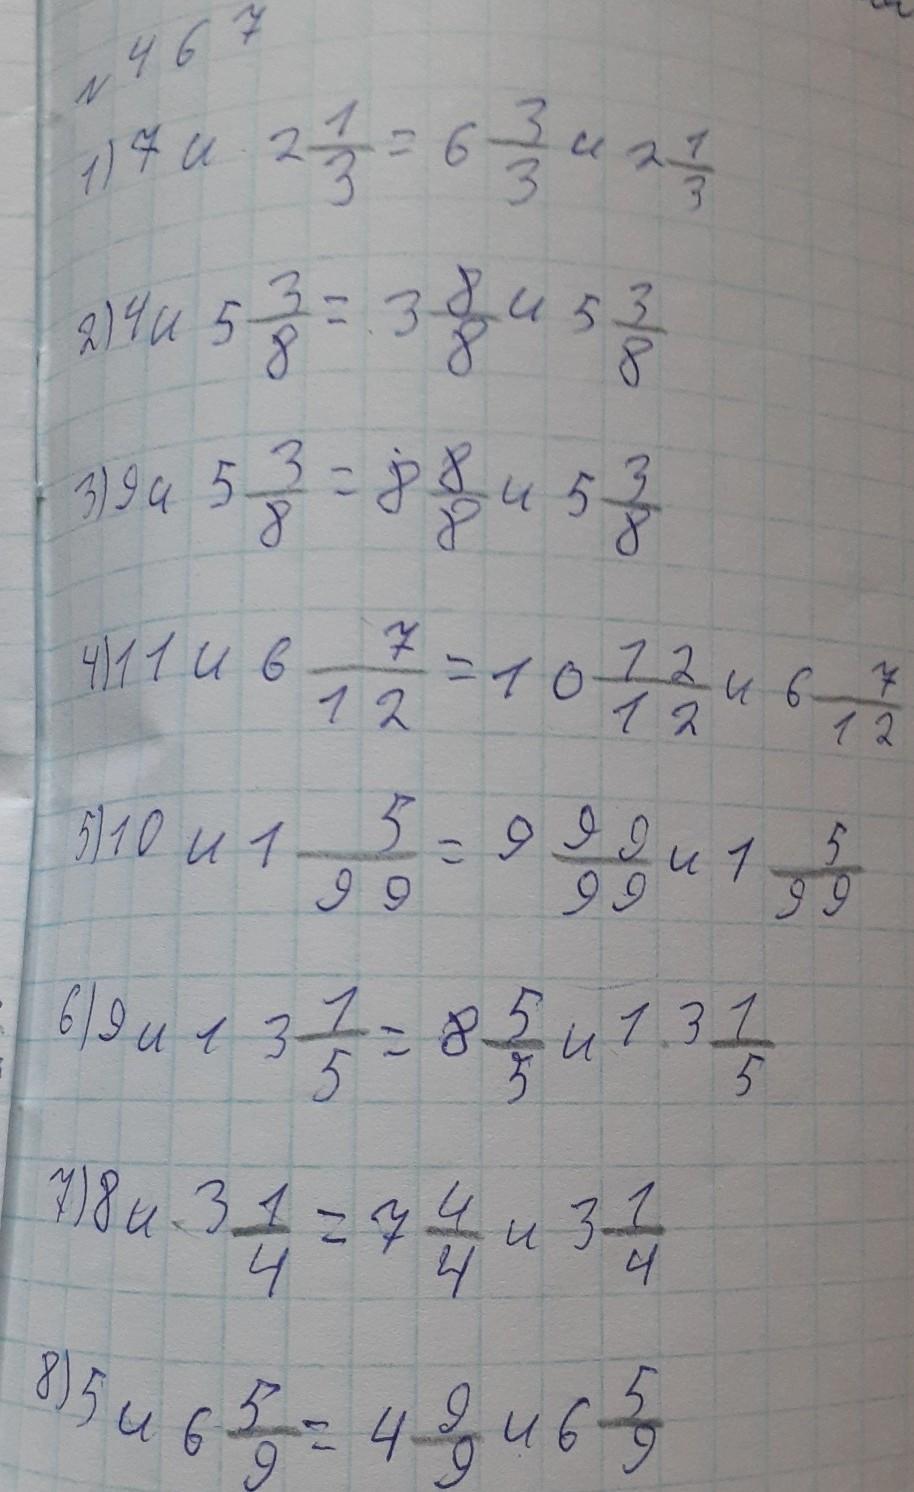 № 467
1) 7 и 2 1/3 = 6 3/3 и 2 1/3
2) 4 и 5 3/8 = 3 8/8 и 5 3/8
3) 9 и 5 3/8 = 8 8/8 и 5 3/8
4) 11 и 6 7/12 = 10 12/12 и 6 7/12
5) 10 и 1 5/99 = 9 99/99 и 1 5/99
6) 9 и 13 1/5 = 8 5/5 и 13 1/5
7) 8 и 3 1/4 = 7 4/4 и 3 1/4
8) 5 и 6 5/9 = 4 9/9 и 6 5/9